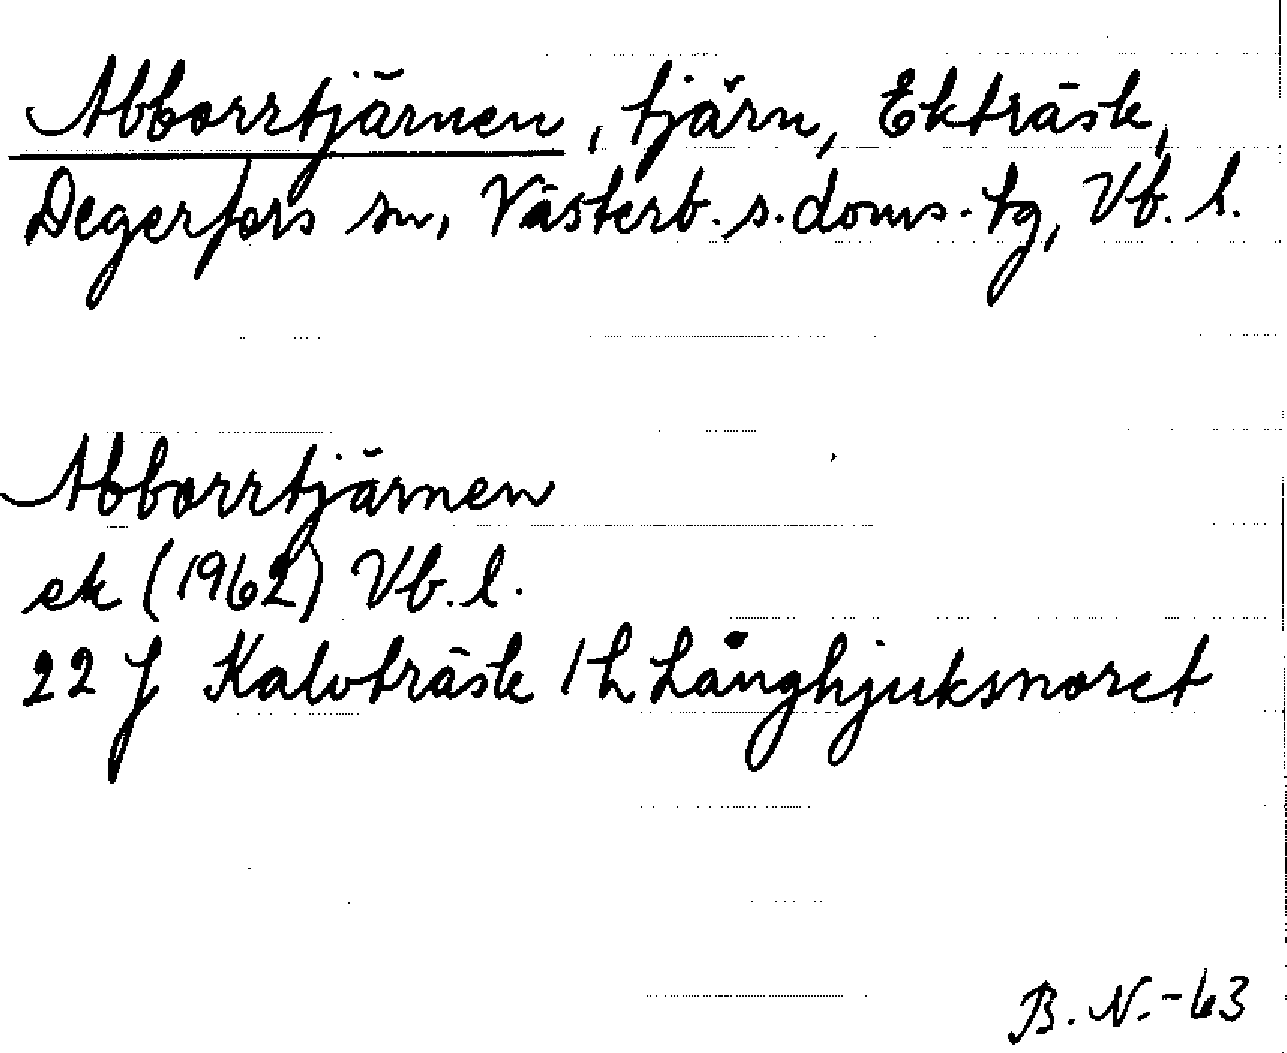 Abborrtjärnen, tjärn, Ekträsk,
Degerfors sn, Västerb. s. doms. tg, Vb. l.
Abborrtjärnen
ek (1962) Vb. l.
22 J Kalvträsk 1 h Långhjuksnoret
B. N. -63